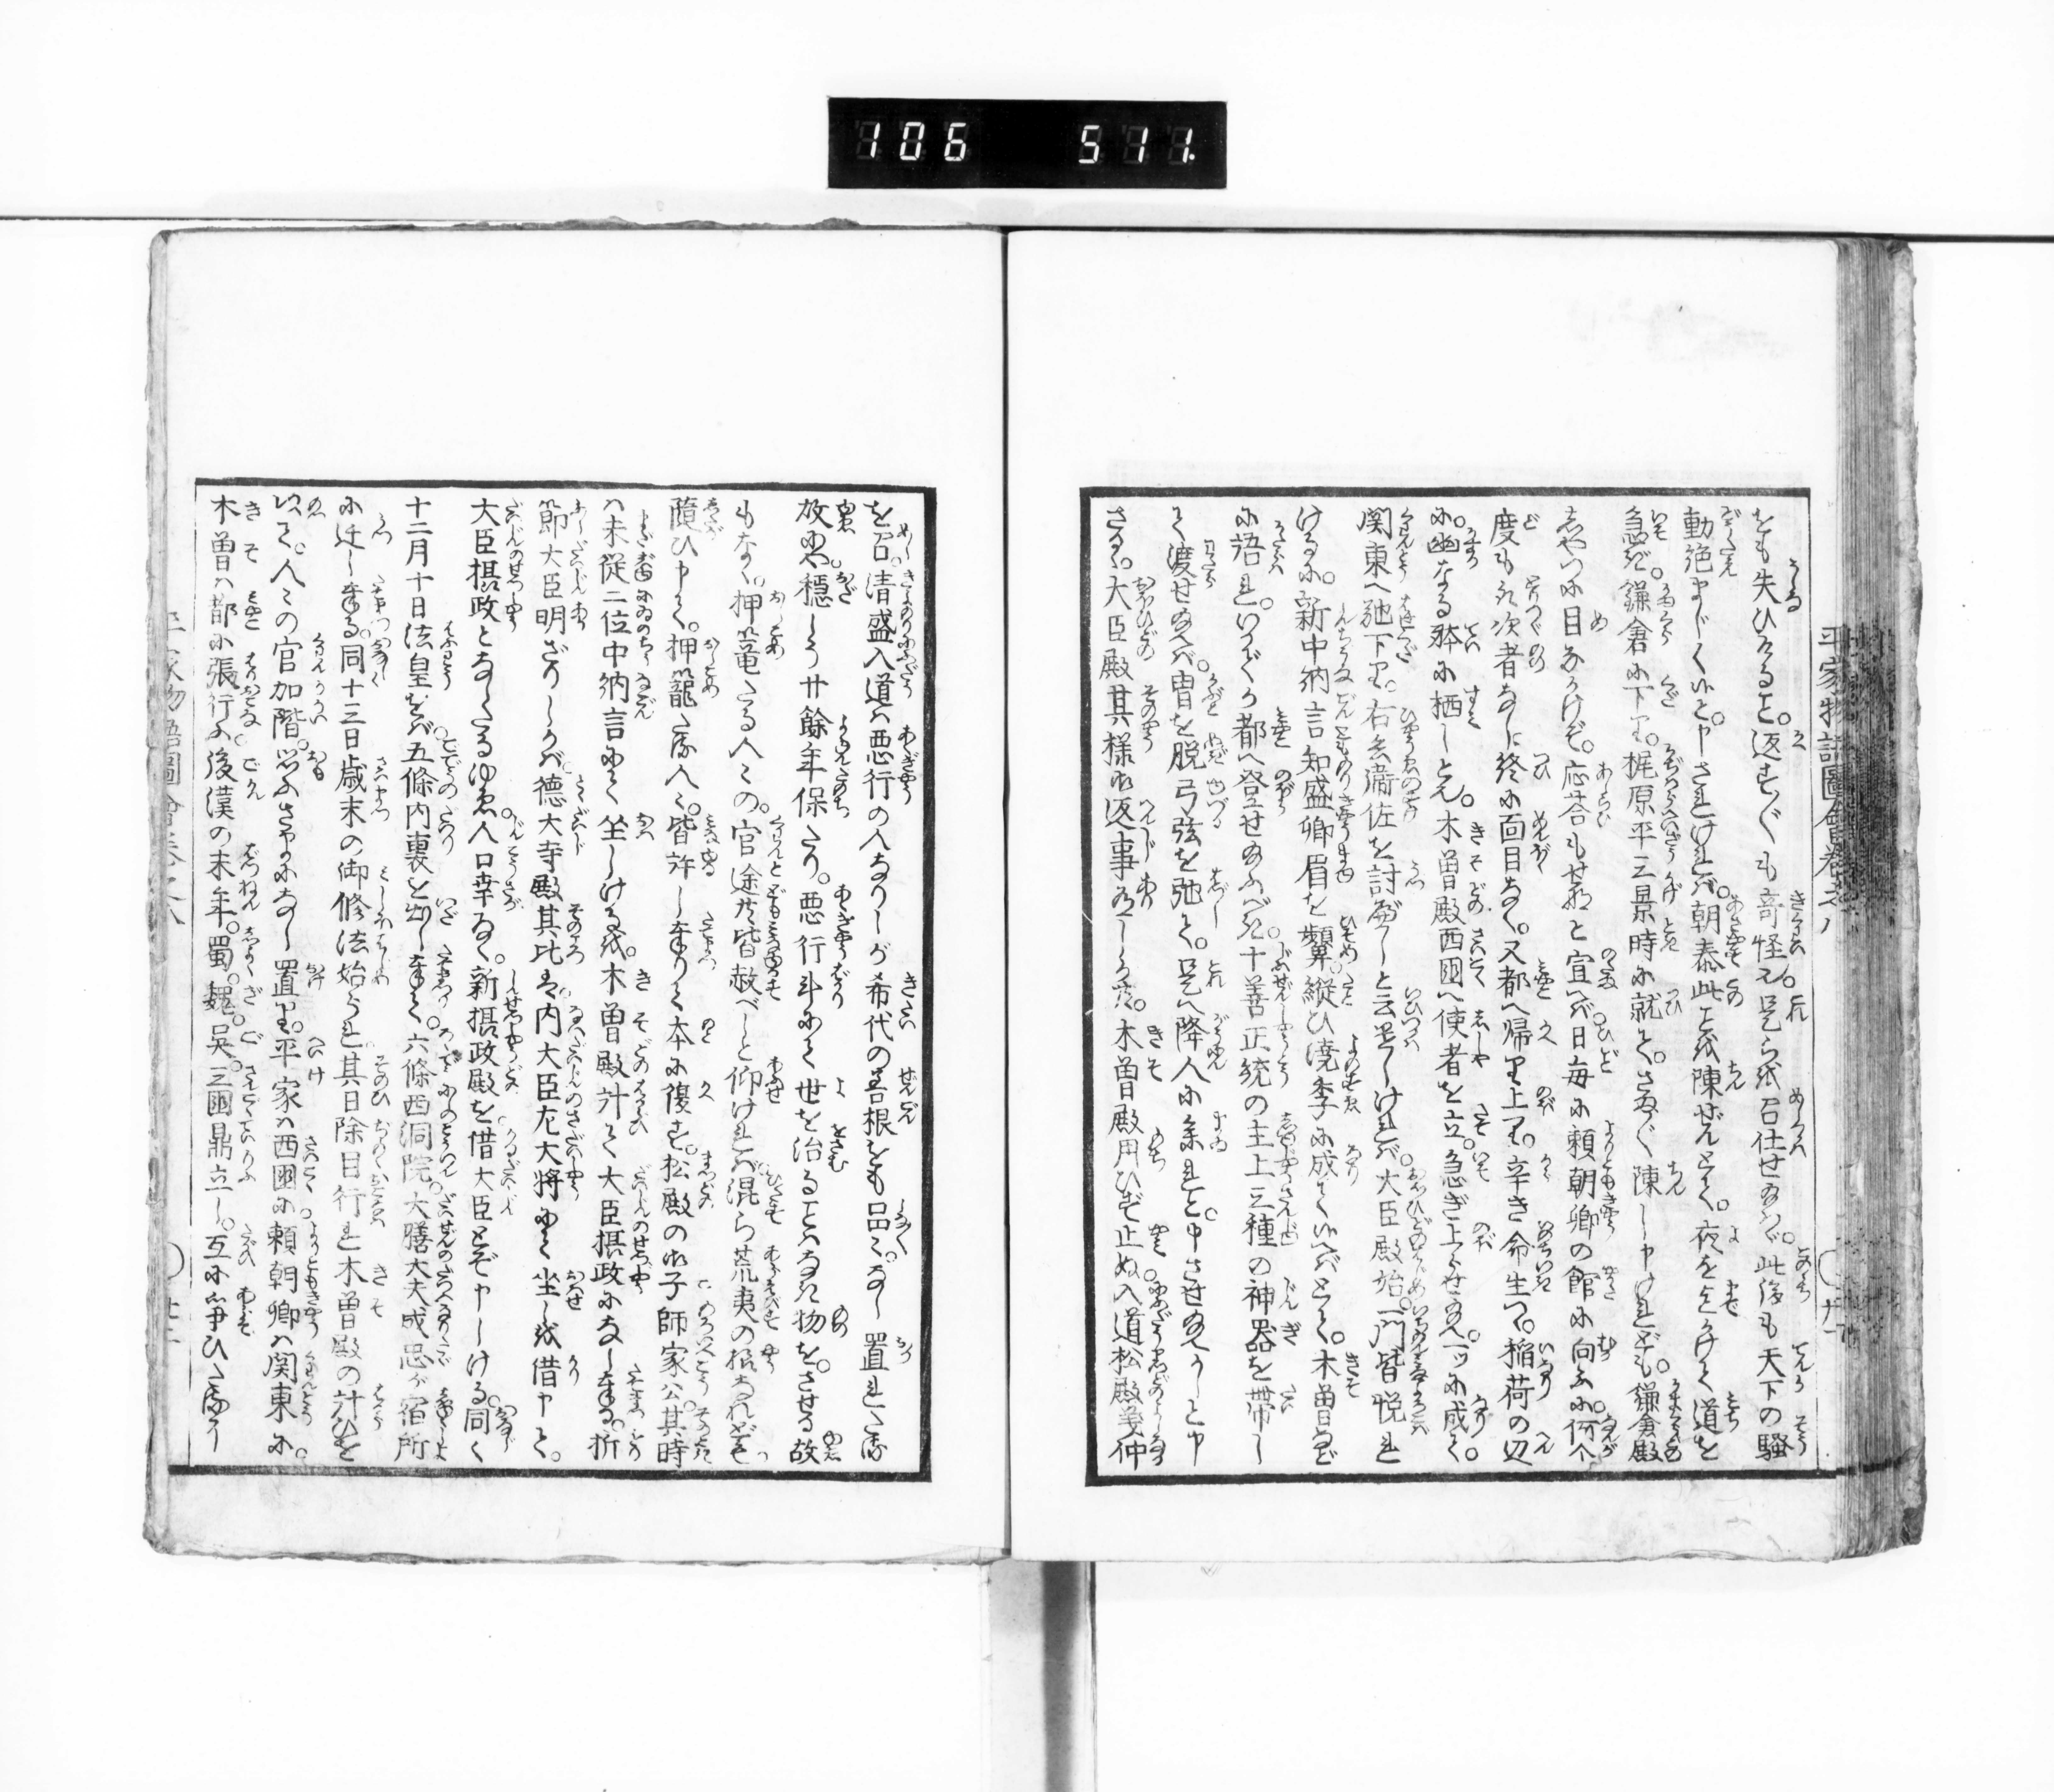 106 511
平家物語圖會卷之八
をも失ひけること。返す〴〵も奇怪也。是らを召仕せ給はゞ。此後も天下の騒
動絶まじく候と。申されければ。朝泰此ことを陳ぜんとて。夜を日にかけて道を
急ぎ。鎌倉に下り。梶原平三景時に就て。さま〴〵陳じ申けれども。鎌倉殿
しやつに目なかけそ。応荅もせそと宣へば。日毎に頼朝卿の館に向ふに。
度も次者なし。終に面目なく。又都へ帰り上り。辛き命生て。稲荷の辺
に。幽なる躰に栖しとかや。木曽殿西國へ使者を立。急ぎ上らせ給へ。一ツに成て。
関東へ馳下り。右兵衛佐を討べしと云送しければ。大臣殿始。一門皆悦れ
けるに。新中納言知盛卿眉を顰。縦ひ澆季に成て候へばとて。木曽など
に語れ。いかでか都へ登せ給ふべき。十善正統の主上三種の神器を帯し
て渡せ給へば。冑を脱弓弦を弛て。是へ降人に参れと。申させ給へかしと申
さる。大臣殿其様御返事有しかば。木曽殿用ひず止ぬ。入道松殿義仲
を召。清盛入道は悪行の人なりしが希代の善根をも品々。なし置れたる
故にや。穏しう廿餘年保たり。悪行斗にて世を治ることはなき物を。させる故
もなく。押篭たる人々の。官途共皆赦べしと仰ければ。混ら荒夷の様なれども
隨ひ申て。押籠たる人々。皆許し奉りて本に復す。松殿の御子師家公。其時
は未従二位中納言にて坐しけるを。木曽殿計て大臣摂政になし奉る。折
節大臣明ざりしかば。德大寺殿其比は。内大臣左大将にて坐しを借申て。
大臣摂政となしたるゆゑ人口幸なく。新摂政殿を。借大臣とぞ申しける。同く
十二月十日法皇をば。五條内裏を出し奉て。六條西洞院。大膳大夫成忠が宿所
に迁し奉る。同十三日歳末の御修法始られ。其日除目行れ木曽殿の計ひを
以て。人々の官加階。思ふさまになし置り。平家は西國に。頼朝卿は関東に。
木曽は都に張行ふ。後漢の末年。蜀。魏。呉。三國鼎立し。互に争ひたるが
平家物語圖會卷之八